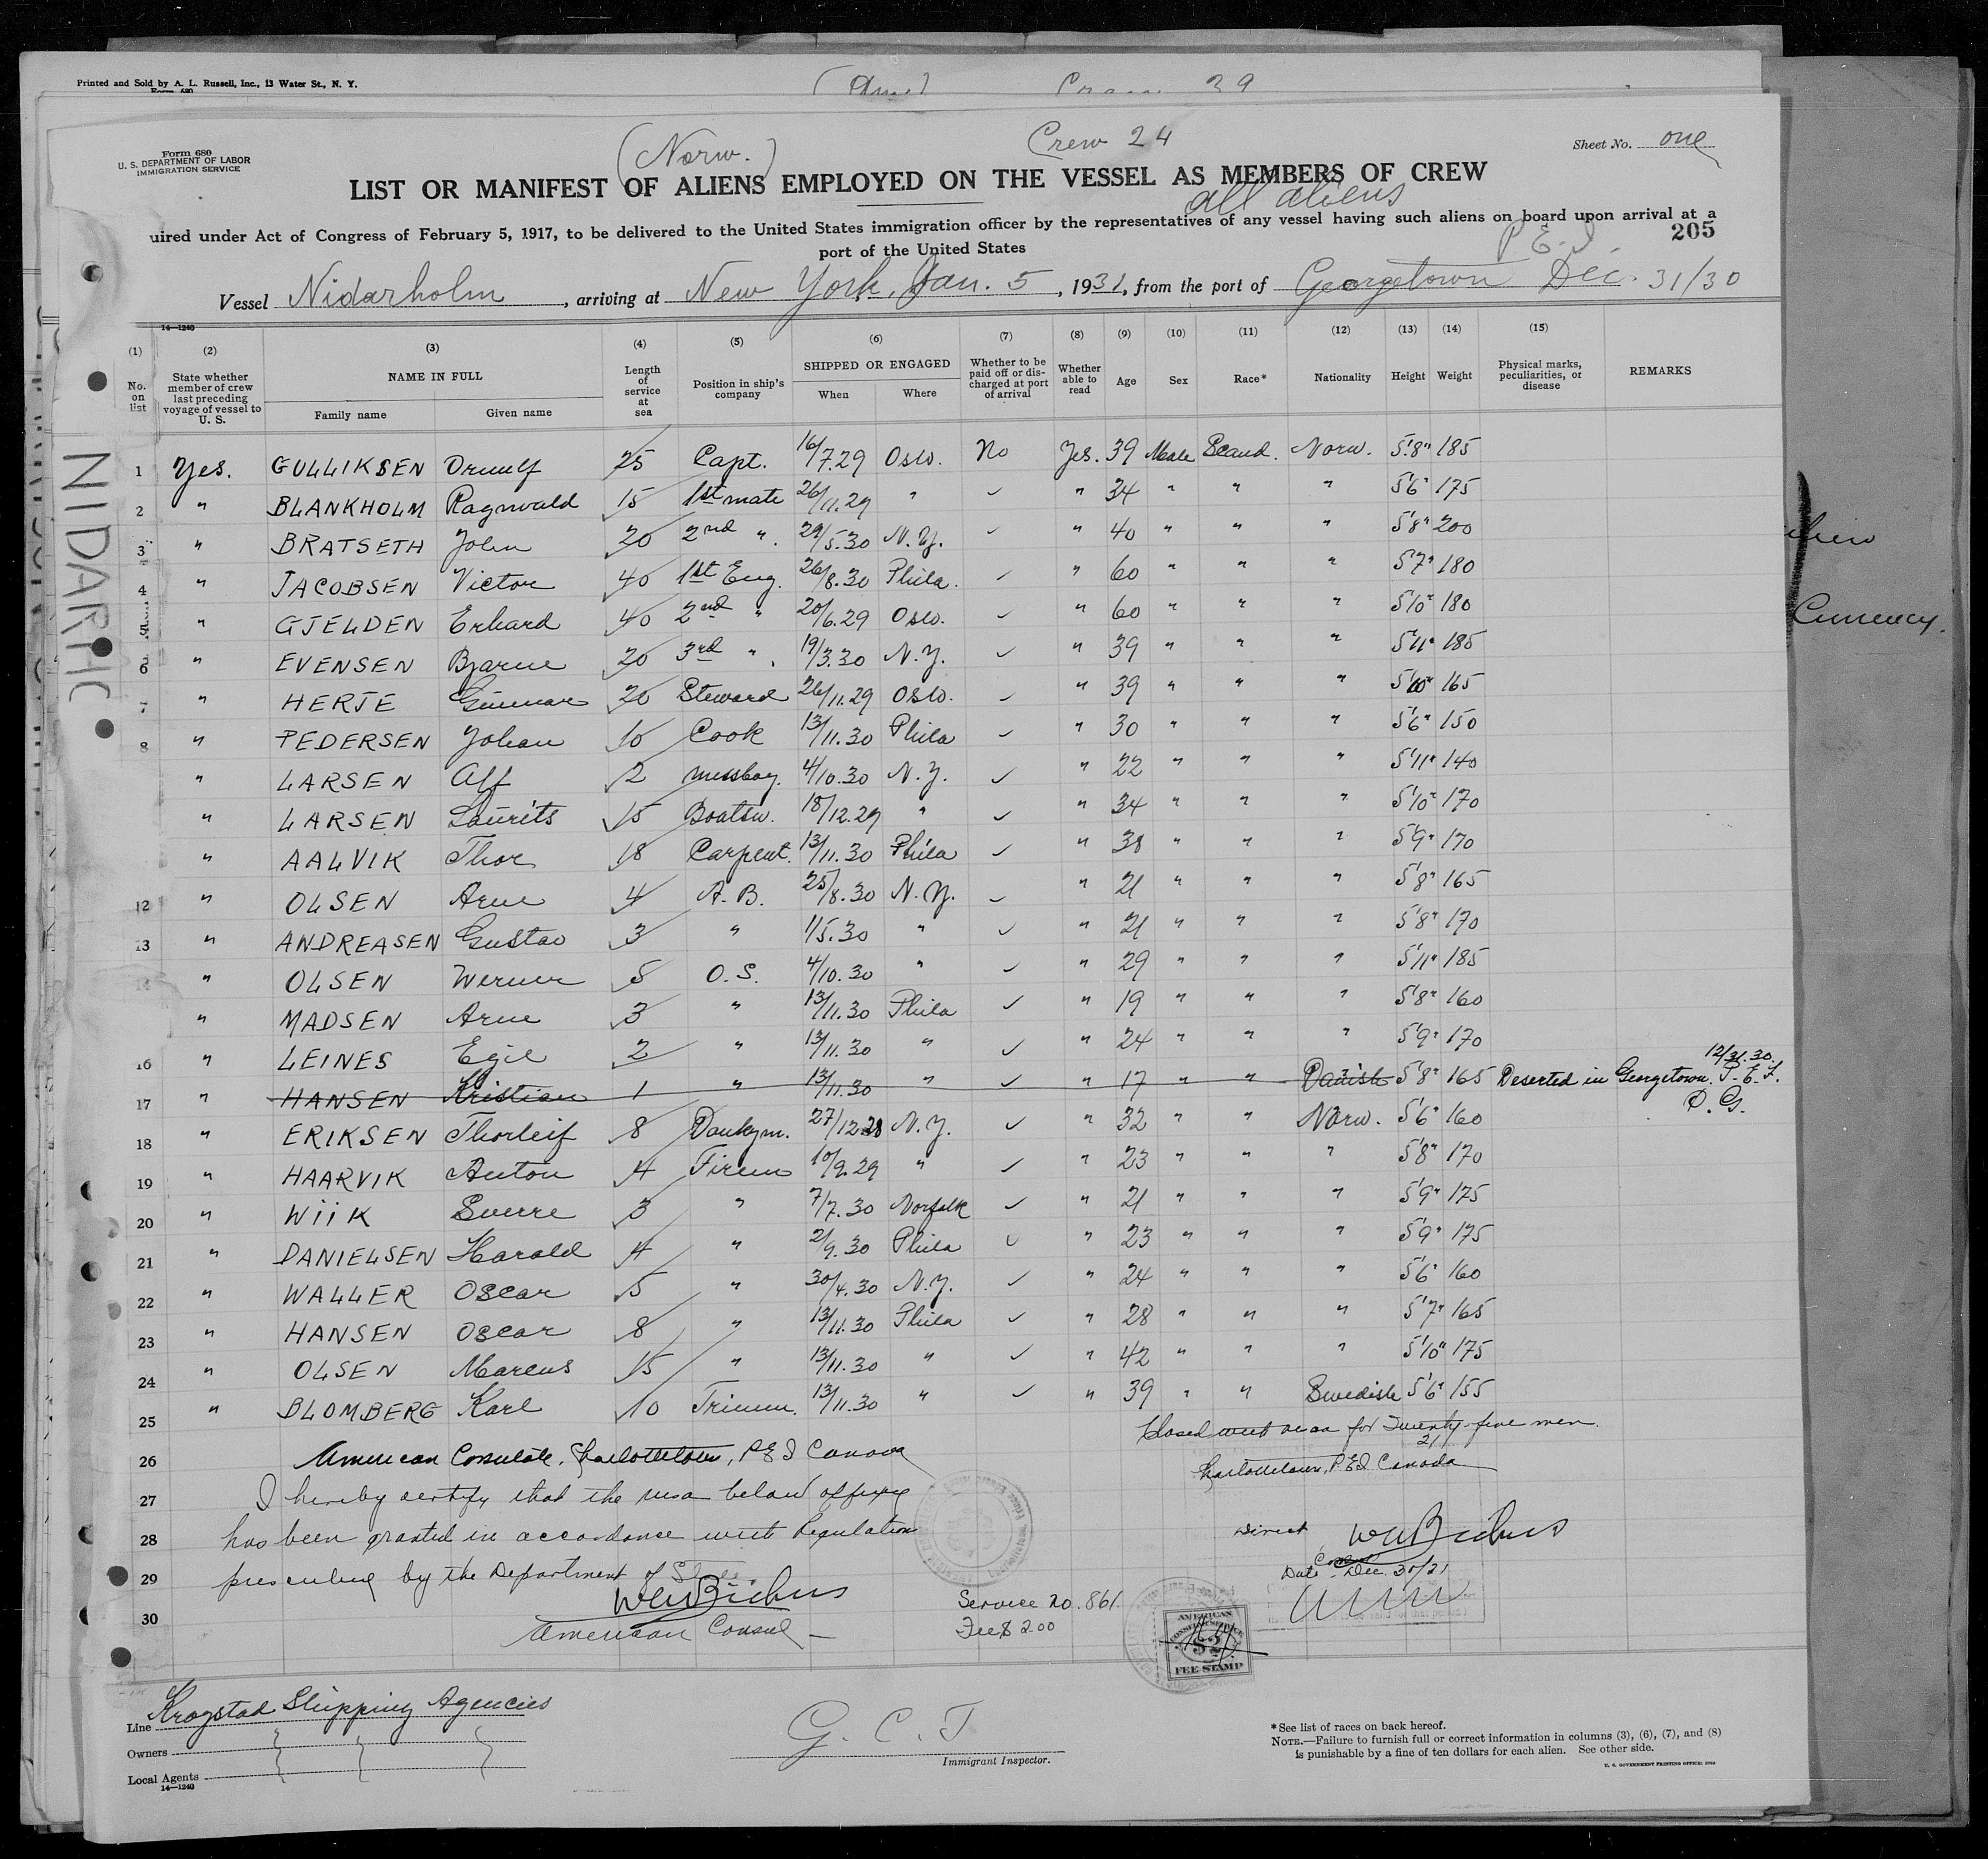 Printed and Sold by A. L. Russell, Inc., 13 Water St., N. Y.
Form 680
Crew 29
Form 680
U. S. DEPARTMENT OF LABOR
IMMIGRATION SERVICE
(Norw.)
Crew 24
Sheet No. one
LIST OR MANIFEST OF ALIENS EMPLOYED ON THE VESSEL AS MEMBERS OF CREW
all aliens
uired under Act of Congress of February 5, 1917, to be delivered to the United States immigration officer by the representatives of any vessel having such aliens on board upon arrival at a
port of the United States
P. E. I.
205
Vessel Nidarholm, arriving at New York, Jan. 5, 1931, from the port of Georgetown Dec. 31/30
14—1240
(1) (2) (3) (4) (5) (6) (7) (8) (9) (10) (11) (12) (13) (14) (15)
No. on list
State whether member of crew last preceding voyage of vessel to U. S.
NAME IN FULL
Family name Given name
Length of service at sea
Position in ship's company
SHIPPED OR ENGAGED
When Where
Whether to be paid off or discharged at port of arrival
Whether able to read
Age Sex Race* Nationality Height Weight
Physical marks, peculiarities, or disease
REMARKS
NIDARHO
1 Yes. GULLIKSEN 25 Capt. 16/7.29 Oslo. No Yes. 39 Male Scand. Norw. 5'8" 185
2 " BLANKHOLM Ragnvald 15 1st mate 26/11.29 " ✓ " 34 " " " 5'6" 175
3 " BRATSETH John 20 2nd ". 29/5.30 N.Y. ✓ " 40 " " " 5'8" 200
4 " JACOBSEN Victor 40 1st Eng. 26/8.30 Phila. ✓ " 60 " " " 5'7" 180
5 " GJELDEN Erhard 40 2nd " 20/6.29 Oslo. ✓ " 60 " " " 5'10" 180
6 " EVENSEN Bjarne 20 3rd ". 19/3.30 N.Y. ✓ " 39 " " " 5'11" 185
7 " HERJE Gunnar 20 Steward 26/11.29 Oslo. ✓ " 39 " " " 5'10" 165
8 " PEDERSEN Johan 10 Cook 13/11.30 Phila ✓ " 30 " " " 5'6" 150
" LARSEN Alf 2 messboy. 4/10.30 N.Y. ✓ " 22 " " " 5'11" 140
" LARSEN Laurits 15 Boatsw. 18/12.29 " ✓ " 34 " " " 5'10" 170
" AALVIK Thor 18 Carpent. 13/11.30 Phila ✓ " 38 " " " 5'9" 170
12 " OLSEN Arne 4 A.B. 25/8.30 N.Y. ✓ " 21 " " " 5'8" 165
13 " ANDREASEN Gustav 3 " 1/5.30 " ✓ " 21 " " " 5'8" 170
14 " OLSEN Werner 5 O.S. 4/10.30 " ✓ " 29 " " " 5'11" 185
" MADSEN Arne 3 " 13/11.30 Phila ✓ " 19 " " " 5'8" 160
16 " LEINES Egil 2 " 13/11.30 " ✓ " 24 " " " 5'9" 170
12/31.30.
17 " HANSEN Kristian 1 " 13/11.30 " ✓ " 17 " " Danish 5'8" 165 Deserted in Georgetown. P.E.I.
O.G.
18 " ERIKSEN Thorleif 8 Donkym. 27/12.28 N.Y. ✓ " 32 " " Norw. 5'6" 160
19 " HAARVIK Anton 4 Firem 10/9.29 " ✓ " 23 " " " 5'8" 170
20 " WIIK Sverre 3 " 7/7.30 Norfolk ✓ " 21 " " " 5'9" 175
21 " DANIELSEN Harald 4 " 2/9.30 Phila ✓ " 23 " " " 5'9" 175
22 " WALLER Oscar 5 " 30/4.30 N.Y. ✓ " 24 " " " 5'6" 160
23 " HANSEN Oscar 8 " 13/11.30 Phila ✓ " 28 " " " 5'7" 165
24 " OLSEN Marcus 15 " 13/11.30 " ✓ " 42 " " " 5'10" 175
25 " BLOMBERG Karl 10 Trimm. 13/11.30 " ✓ " 39 " " Swedish 5'6" 155
Closed with visa for Twenty-five men.
26 American Consulate, Charlottetown, P E I Canada
Charlottetown, P.E.I Canada
27 I hereby certify that the visa below affixed
28 has been granted in accordance with Regulation
Direct
29 prescribed by the Department of State.
Date Dec. 30/31
American Consul
Service No. 861.
Fee $ 2.00
30
AMERICAN
CONSULAR SERVICE
$2
FEE STAMP
Currency.
Line Krogstad Shipping Agencies
Owners
Local Agents
14—1240
G. C. T
Immigrant Inspector.
*See list of races on back hereof.
NOTE.—Failure to furnish full or correct information in columns (3), (6), (7), and (8)
is punishable by a fine of ten dollars for each alien. See other side.
U. S. GOVERNMENT PRINTING OFFICE: 1930